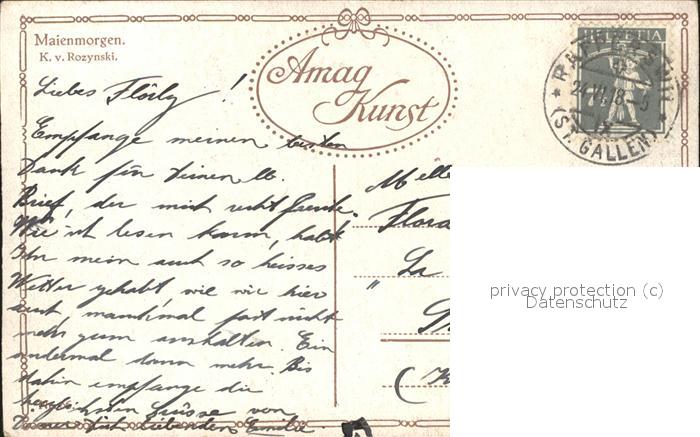 Maienmorgen.
K. v. Rozynski.
Amag
Kunst
HELVETIA
24.VI.18-5
(ST. GALLEN)
Liebes Flörly !
Empfange meinen besten
Dank für deinen lb.
Brief, der mich recht freute.
Wie ich lesen kann, habt
Ihr mein auch so heisses
Wetter gehabt, wie wir hier
auch, manchmal fast nicht
mehr zum aushalten. Ein
andermal dann mehr. Bis
dahin empfange die
herzlichsten Grüsse von
Deiner dich liebenden Emilie.
Melle
Flora
La
(
privacy protection (c)
Datenschutz